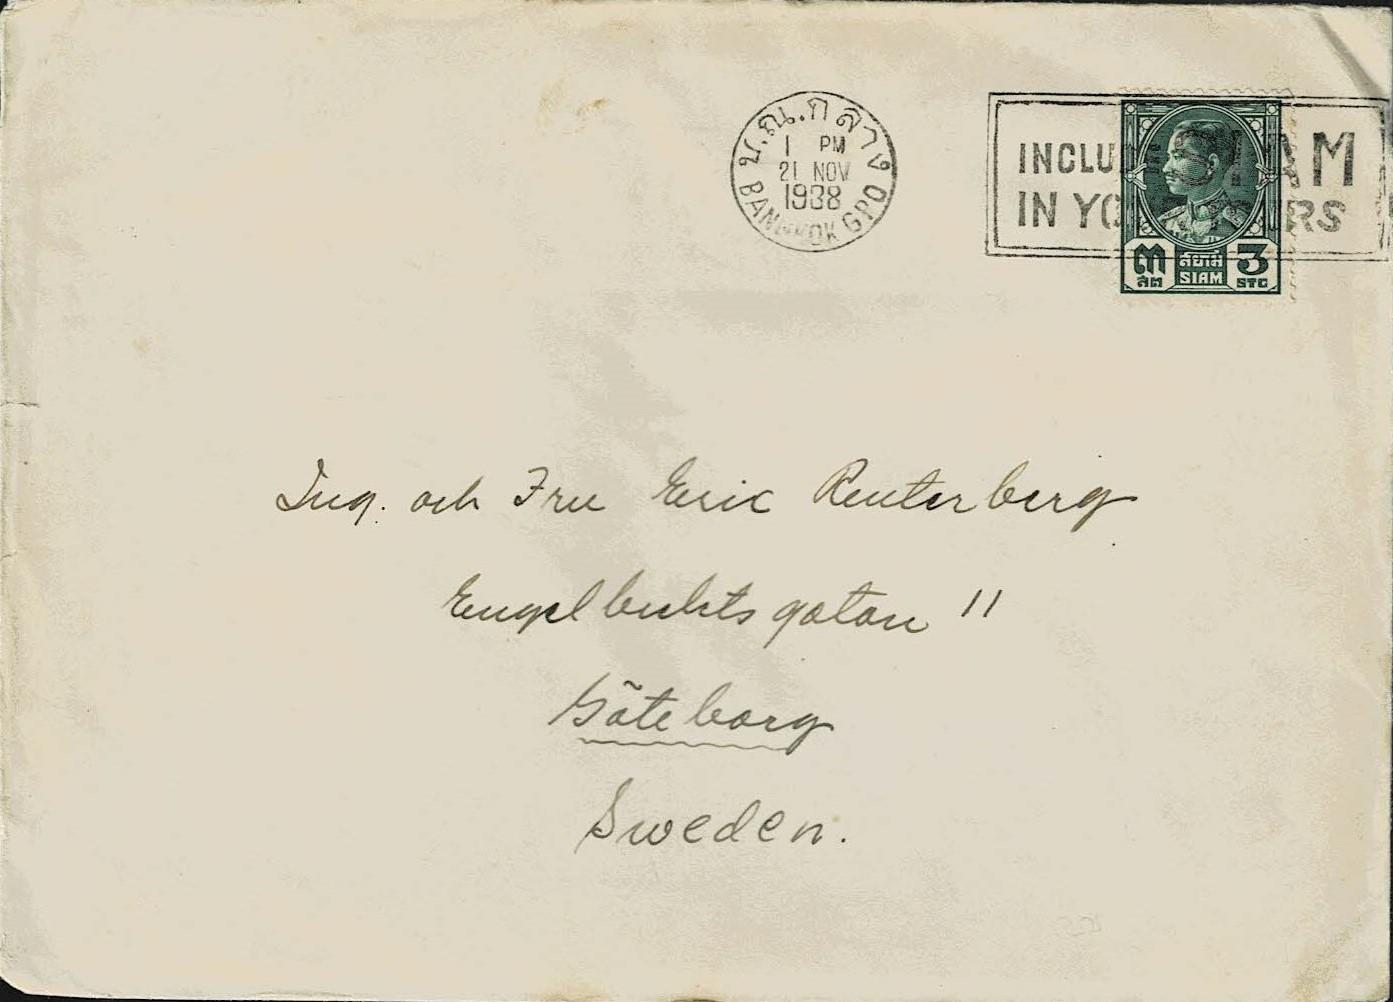 บ.ณ.กลาง
1 PM
21 NOV
1938
BANGKOK GPO
INCLUDE SIAM
IN YOUR TOURS
๓ สยาม 3
สต SIAM STG
Ing. och Fru Eric Reuterberg
Engelbrektsgatan 11
Göteborg
Sweden.